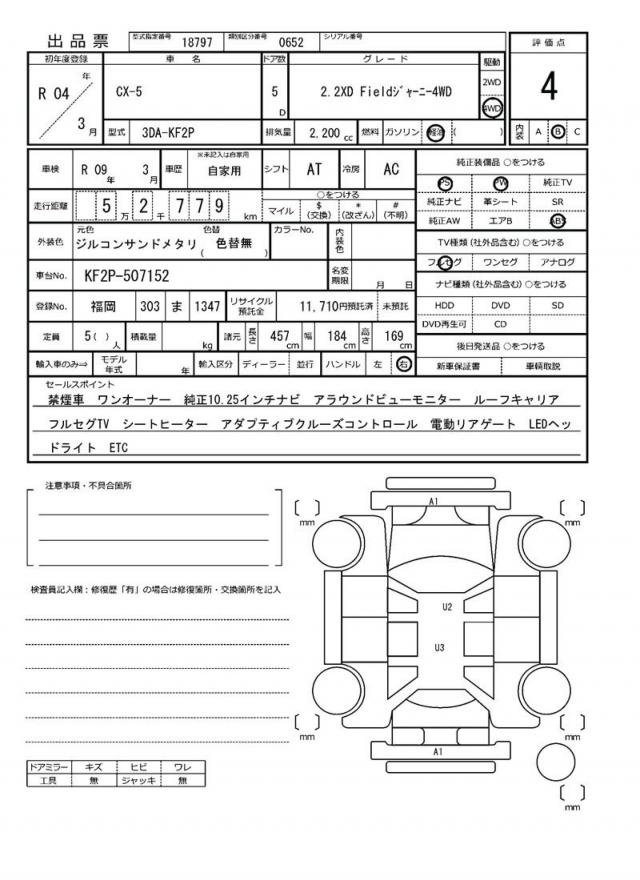 出品票 型式指定番号 18797 類別区分番号 0652 シリアル番号
初年度登録 車名 ドア数 グレード 駆動 評価点
R 04 年 3 月 CX-5 5 D 2.2XD Fieldｼﾞｬｰﾆｰ4WD 2WD 4WD 4
型式 3DA-KF2P 排気量 2,200 cc 燃料 ガソリン 軽油 ( ) 内装 A B C
車検 R 09 年 3 月 車歴 ※未記入は自家用 自家用 シフト AT 冷房 AC
走行距離 5 万 2 千 7 7 9 km ○をつける マイル $ (交換) * (改ざん) # (不明)
外装色 元色 ジルコンサンドメタリ 色替 ( 色替無 ) カラーNo. 内装色
車台No. KF2P-507152 名変期限 月 日
登録No. 福岡 303 ま 1347 リサイクル預託金 11,710円預託済 未預託
定員 5( ) 人 積載量 kg 諸元 長さ 457 cm 幅 184 cm 高さ 169 cm
輸入車のみ⇒ モデル年式 年 輸入区分 ディーラー 並行 ハンドル 左 右
純正装備品 ○をつける
PS PW 純正TV
純正ナビ 革シート SR
純正AW エアB ABS
TV種類(社外品含む) ○をつける
フルセグ ワンセグ アナログ
ナビ種類(社外品含む) ○をつける
HDD DVD SD
DVD再生可 CD
後日発送品 ○をつける
新車保証書 車輌取説
セールスポイント
禁煙車 ワンオーナー 純正10.25インチナビ アラウンドビューモニター ルーフキャリア
フルセグTV シートヒーター アダプティブクルーズコントロール 電動リアゲート LEDヘッ
ドライト ETC
注意事項・不具合箇所
検査員記入欄：修復歴「有」の場合は修復箇所・交換箇所を記入
ドアミラー キズ ヒビ ワレ
工具 無 ジャッキ 無
A1
[ ] mm [ ] mm
U2
U3
[ ] mm [ ] mm
A1
[ ] mm